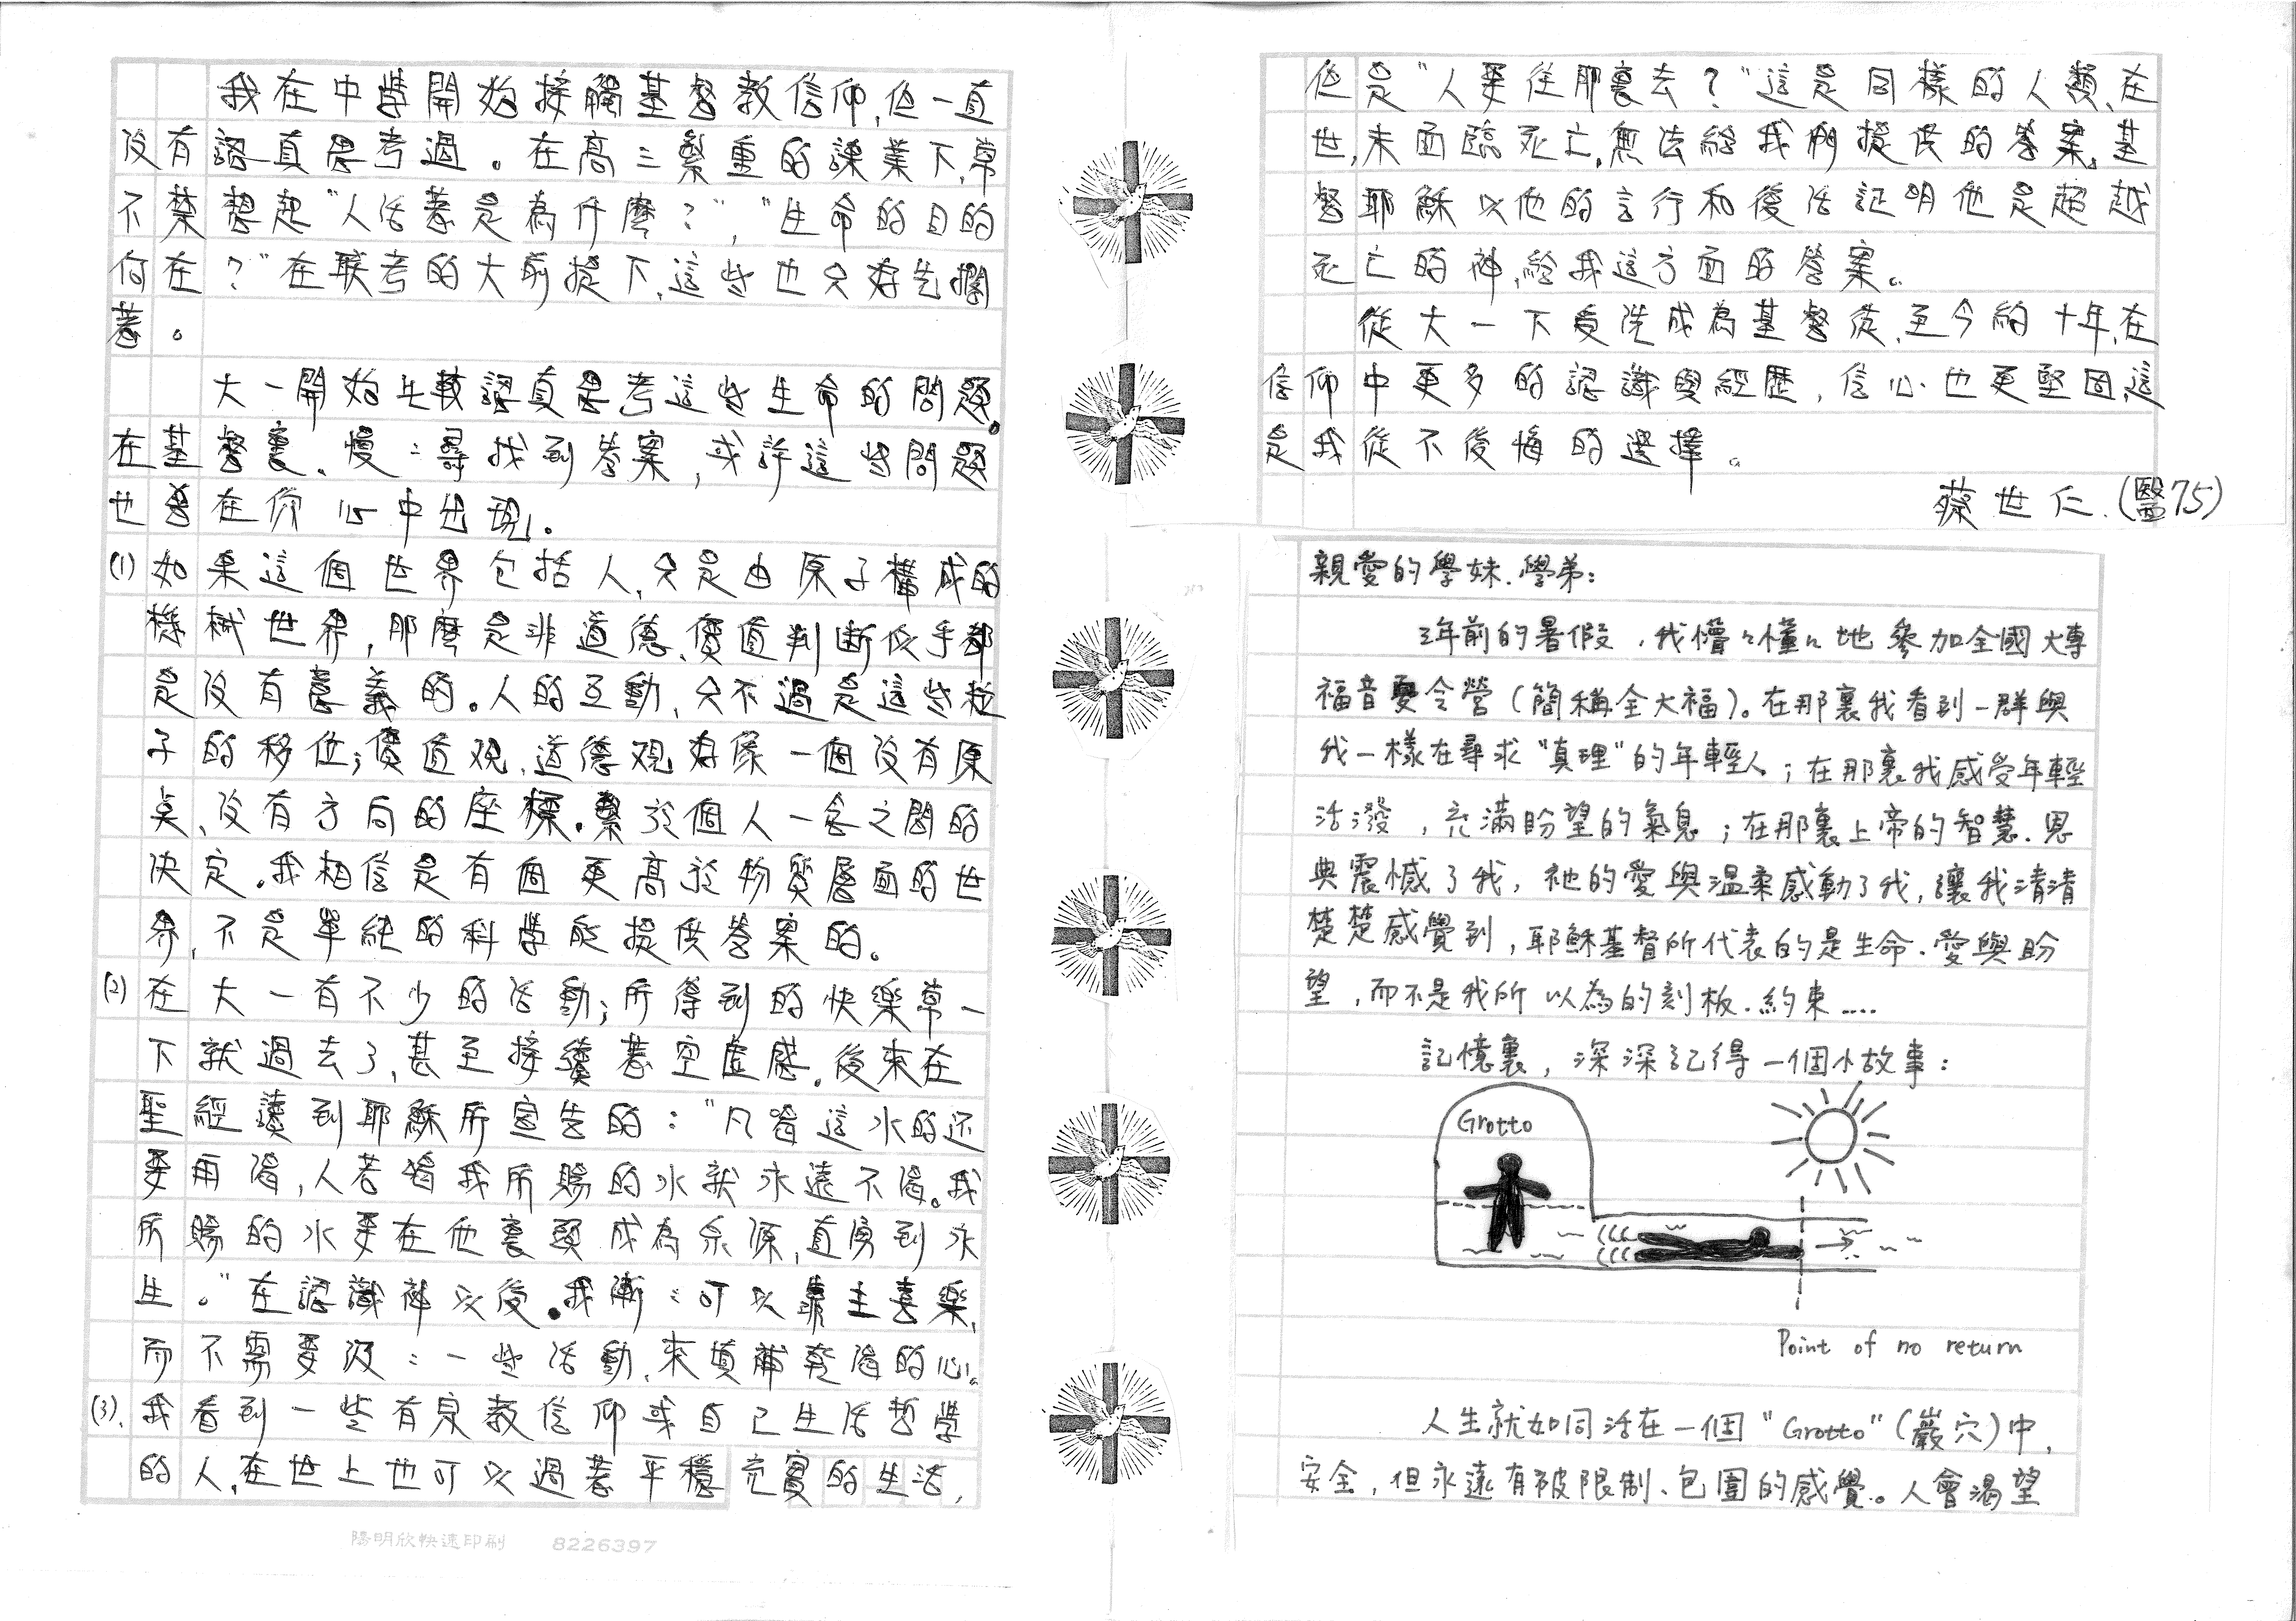 我在中學開始接觸基督教信仰,但一直
沒有認真思考過。在高三繁重的課業下,常
不禁想起"人活著是為什麼?","生命的目的
何在?"在联考的大前提下,這些也只好先擱
著。
大一開始比較認真思考這些生命的問題。
在基督裏,慢:尋找到答案,或許這些問題
也會在你心中出現。
(1) 如果這個世界包括人,只是由原子構成的
機械世界,那麼是非道德、價值判断似乎都
是沒有意義的。人的互動,只不過是這些粒
子的移位;價值观、道德观好像一個沒有原
奌、沒有方向的座標。繫於個人一念之間的
決定。我相信是有個更高於物質層面的世
界,不是單純的科學能提供答案的。
(2) 在大一有不少的活動;所得到的快樂常一
下就過去了,甚至接續著空虛感。後來在
聖經讀到耶穌所宣告的:"凡喝這水的还
要再渴,人若喝我所賜的水就永遠不渴。我
所賜的水要在他裏頭成為泉源,直湧到永
生。"在認識神以後。我漸:可以靠主喜樂,
而不需要汲:一些活動,來填補乾渴的心。
(3). 我看到一些有宗教信仰或自己生活哲學
的人,在世上也可以過著平穩充實的生活,
陽明欣快速印刷 8226397
但是"人要往那裏去?"這是同樣的人類、在
世,未面臨死亡,無法給我們提供的答案。基
督耶穌以他的言行和復活証明他是超越
死亡的神,給我這方面的答案。
從大一下受洗成為基督徒,至今約十年,在
信仰中更多的認識與經歷,信心也更堅固,這
是我從不後悔的選擇。
蔡世仁.(醫75)
親愛的學妹.學弟:
3年前的暑假,我懵々懂々地參加全國大專
福音夏令營(簡稱全大福)。在那裏我看到一群與
我一樣在尋求"真理"的年輕人;在那裏我感受年輕
活潑,充滿盼望的氣息;在那裏上帝的智慧.恩
典震憾了我,祂的愛與溫柔感動了我,讓我清清
楚楚感覺到,耶穌基督所代表的是生命.愛與盼
望,而不是我所以為的刻板.約束....
記憶裏,深深記得一個小故事:
Grotto
Point of no return
人生就如同活在一個"Grotto"(巖穴)中,
安全,但永遠有被限制、包圍的感覺。人會渴望